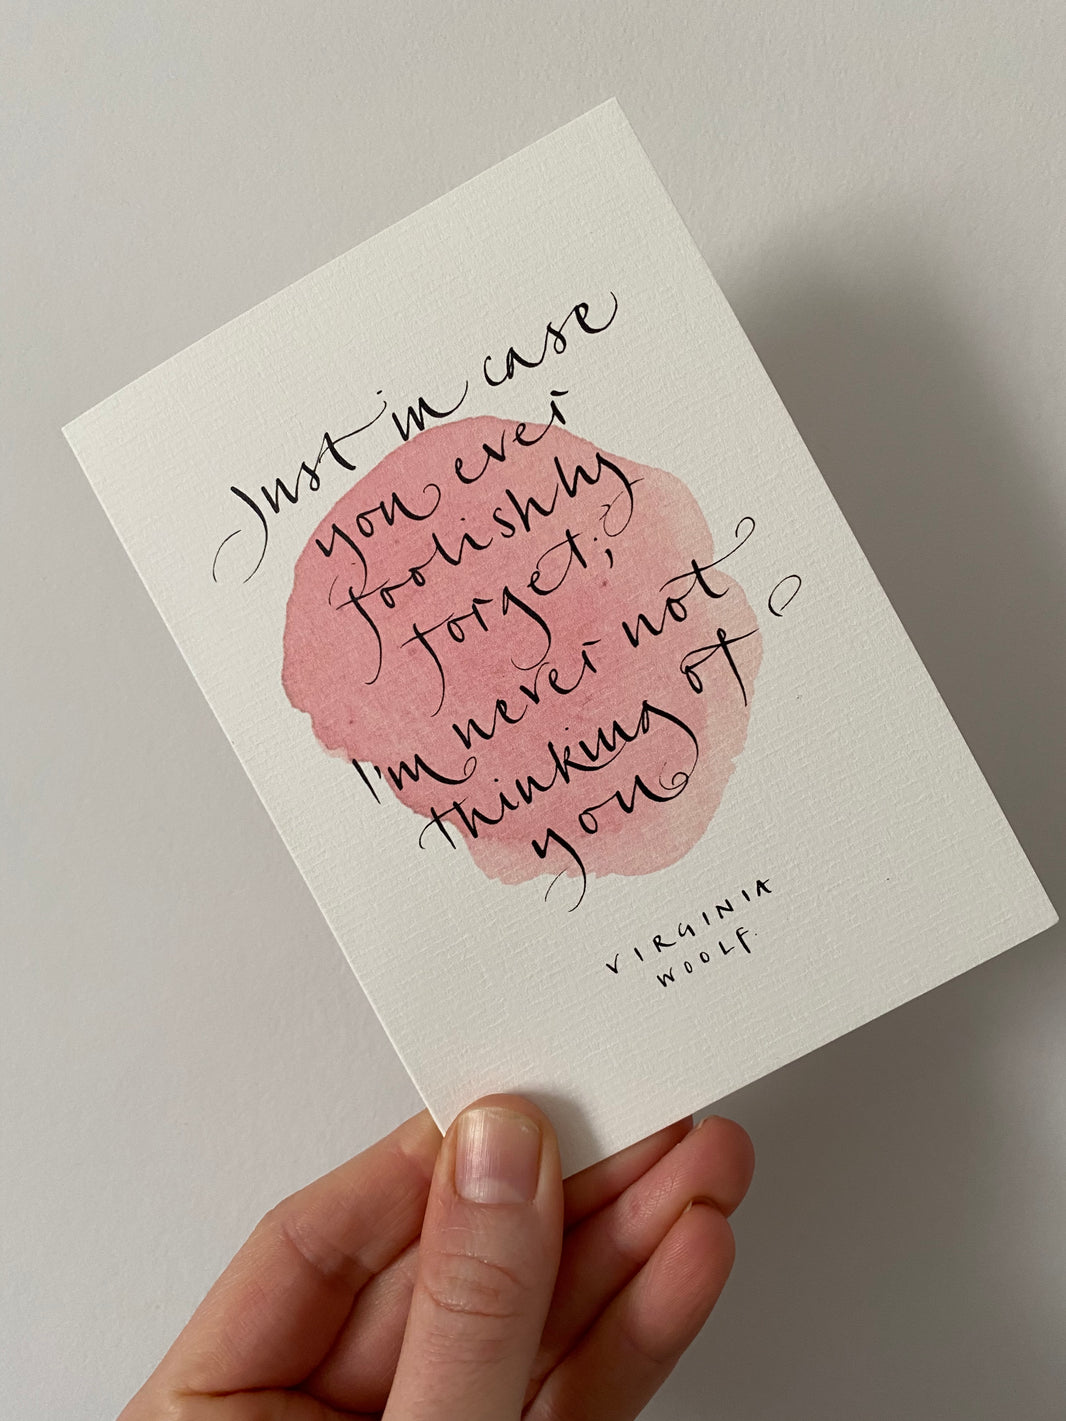 Just in case
you ever
foolishly
forget;
I'm never not
thinking of
you
VIRGINIA
WOOLF.